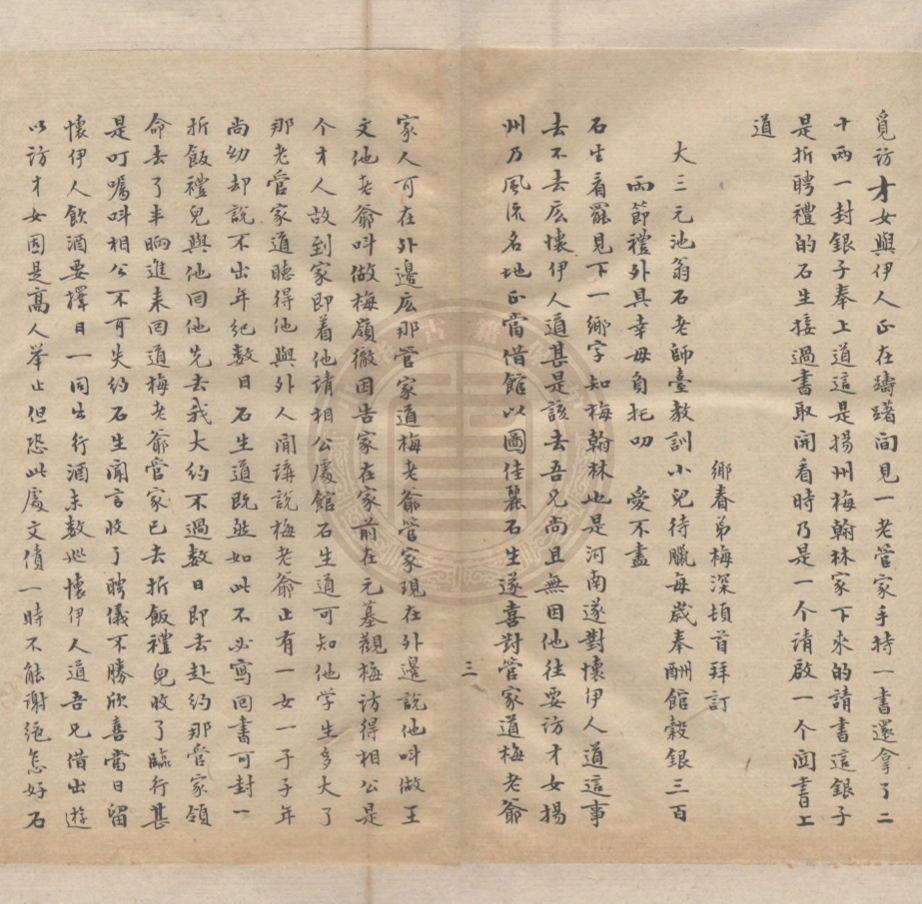 覓訪才女與伊人正在躊躇间見一老管家手特一書還拿了二
十两一封銀子奉上道這是揚州梅翰林家下來的請書這銀子
是折聘禮的石生接過書取開看時乃是一个请啟一个関書上
道
鄉春弟梅深頓首拜訂
大三元池翁石老師臺教訓小兒待臘每歲奉酬館穀銀三百
兩節禮外具幸毋負托叨　愛不盡
石生看罷見下一鄉字知梅翰林也是河南遂對懷伊人道這事
去不去庅懷伊人道甚是該去吾兄尚且無因他往要訪才女揚
州乃風流名地正當借館以圖佳麗石生遂喜對管家道梅老爺
三
家人可在外邊庅那管家道梅老爺管家現在外邊說他呌做王
文他老爺呌做梅嶺徹因告家在家前在元墓觀梅訪得相公是
个才人故到家即着他請相公處館石生道可知他学生多大了
那老管家道聽得他與外人閒講說梅老爺止有一女一子子年
尚幼却說不出年紀數目石生道既然如此不必寫回書可封一
折飯禮兒與他回他先去我大約不過數日即去赴約那管家領
命去了半晌進来回道梅老爺管家已去折飯禮兒收了臨行甚
是叮囑呌相公不可失約石生聞言收了聘儀不勝欣喜當日留
懷伊人飲酒要擇日一同出行酒未數巡懷伊人道吾兄借出遊
以訪才女固是高人举止但恐此處文債一時不能谢绝怎好石